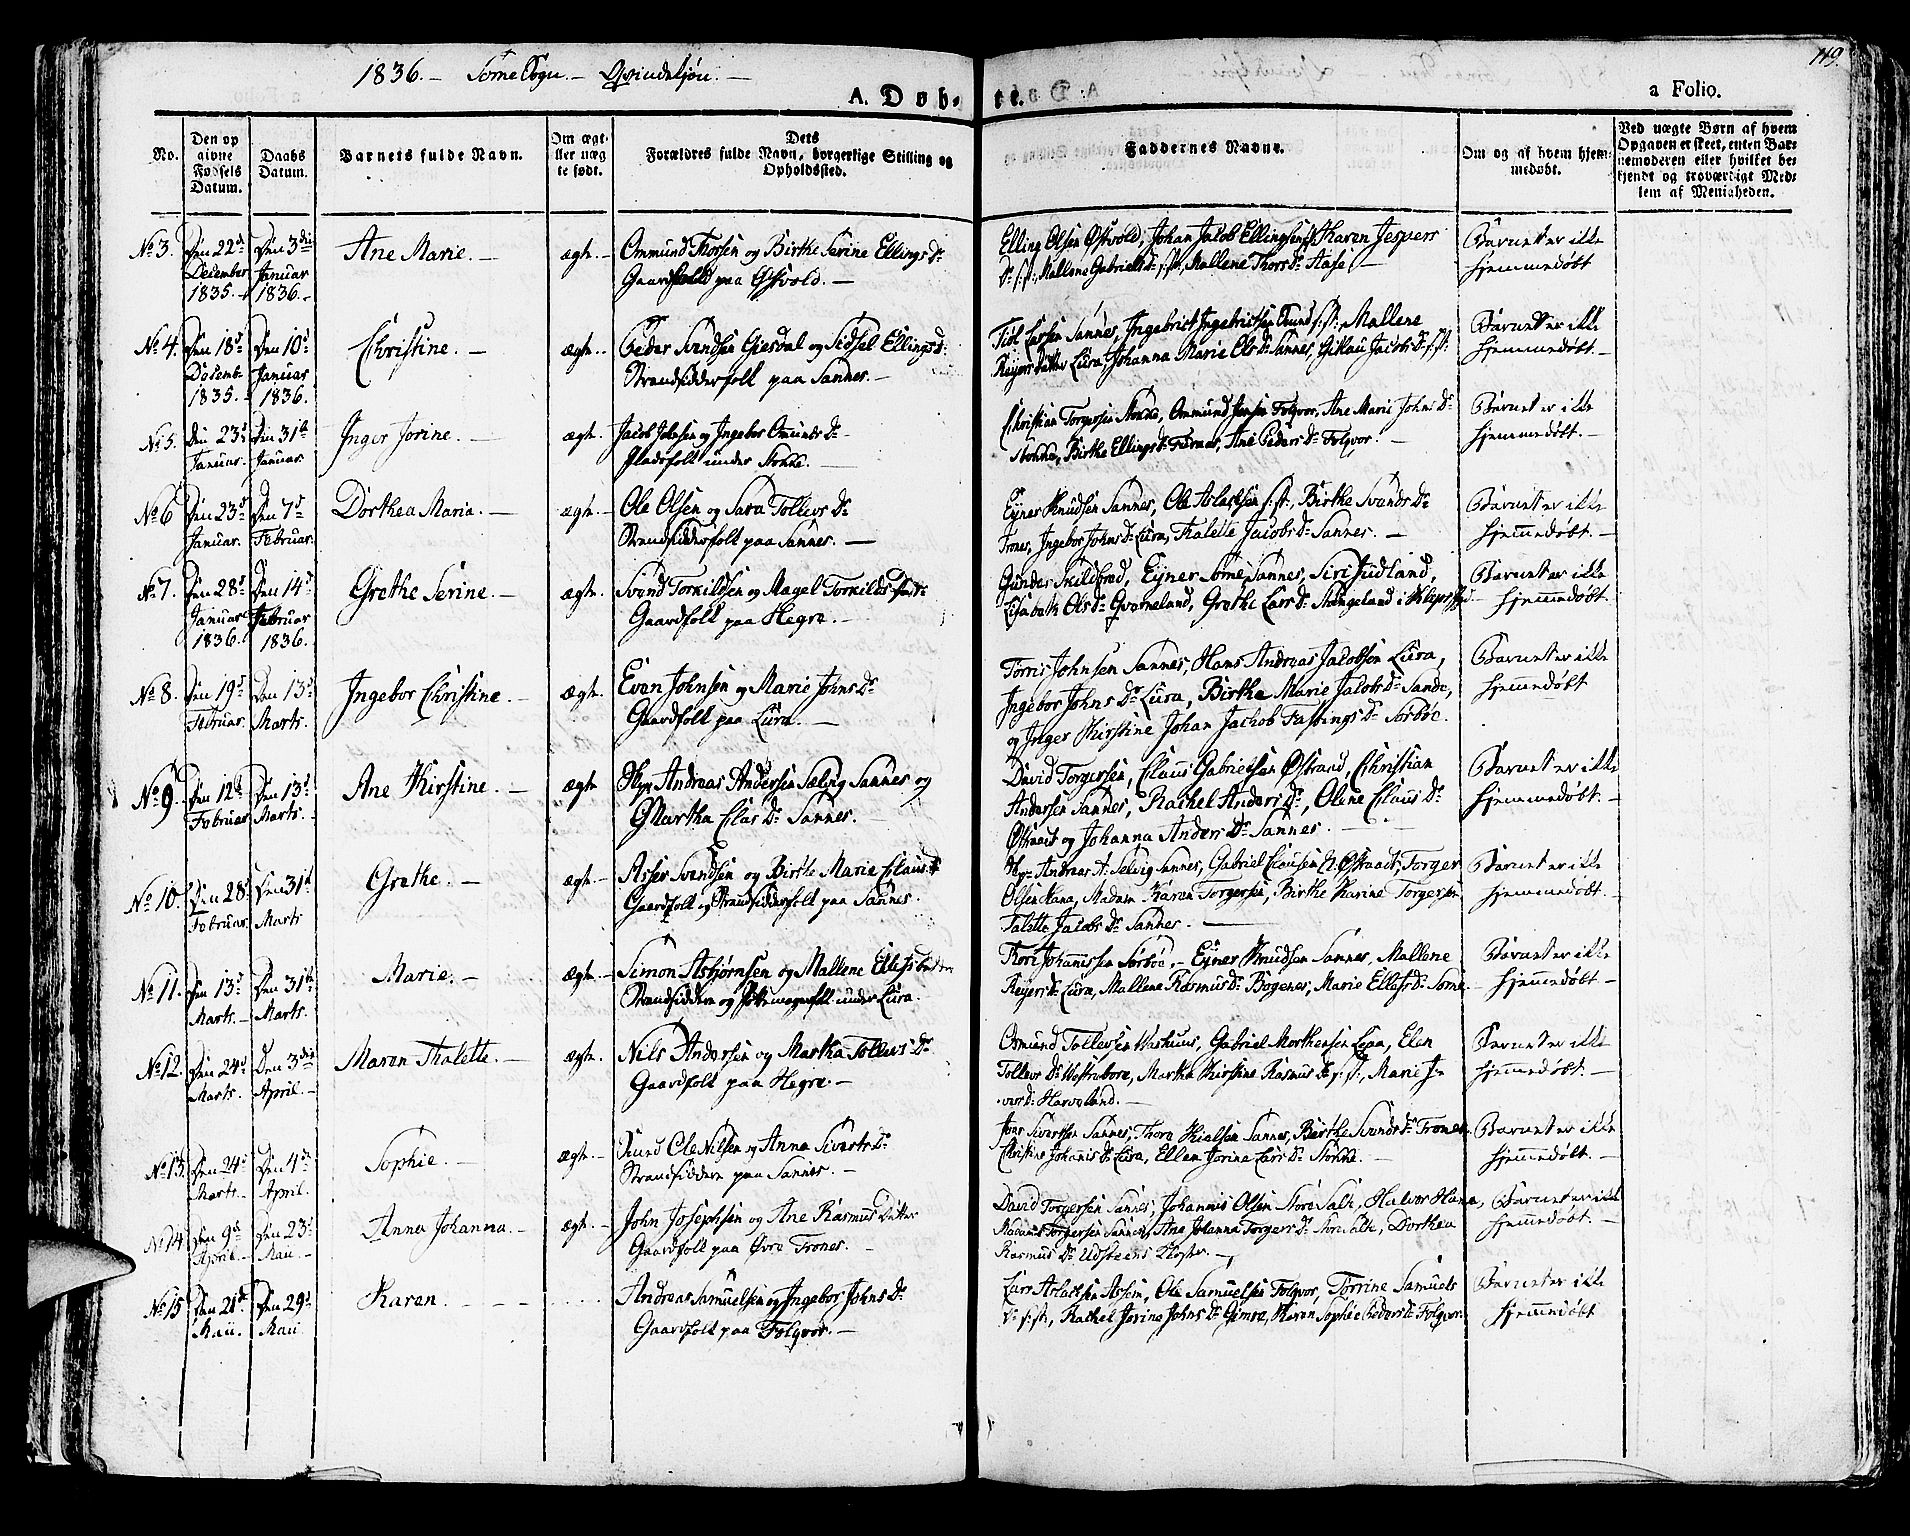 1836. – Søme Sogn. – Qvindekjøn. –
119.
A. Døbte.
a Folio.
No.
Den opgivne Fødsels Datum.
Daabs Datum.
Barnets fulde Navn.
Om ægte eller uægte født.
Dets Forældres fulde Navn, borgerlige Stilling og Opholdssted.
Faddernes Navne.
Om og af hvem hjemmedøbt.
Ved uægte Børn af hvem Opgaven er skeet, enten Barnemoderen eller hvilket bekjendt og troværdigt Medlem af Menigheden.
No 3. Den 22de December 1835. – Den 3die Januar 1836. – Ane Marie. – ægte. – Ommund Thorsen og Birthe Serine Ellings Dr
Gaardfolk paa Østvold. –
Elling Olsen Østvold, Johan Jacob Ellingsen, Karen Jespers
Dr s: st:, Mallene Gabriels Dr s: st:, Mallene Thors Dr Aase. –
Barnet er ikke
hjemmedøbt
No 4. Den 18de Decemb. 1835. – Den 10de Januar 1836. Christine. – ægte. – Peder Svendsen Giesdal og Sidsel Ellings Dr
Strandsidderfolk paa Sannes. –
Larsen Sannes, Ingebrict Ingebrictsen s: st:, Mallene
Reyers datter Lura, Johanna Marie Ols Dr Sannes, Jacobs Dr s: st:
Barnet er ikke
hjemmedøbt. –
No 5. Den 23de Januar. Den 31te Januar. Inger Jorine. – ægte. – Jacob Jobsen og Ingebor Omunds Dr
Pladsfolk under Stokke. –
Christian Torgersen Stokke, Ommund Jensen Folqvor, Ane Marie Johns Dr
Stokke, Birthe Ellings Dr, Ane Peders Dr Folqvor. –
Barnet er ikke
hjemmedøbt. –
No 6 Den 23de Januar. Den 7de Februar. Dorthea Maria. – ægte. – Ole Olsen og Sara Tollevs Dr
Strandsidderfolk paa Sannes. –
Eyner Knudsen Sannes, Ole Aslacksen s: st:, Birthe Svends Dr
Trones, Ingebor Johns Dr Lura, Talette Jacobs Dr Sannes. –
Barnet er ikke
hjemmedøbt. –
No 7. Den 28de Januar 1836. Den 14de Februar 1836. Grethe Serine. – ægte. – Svend Torkildsen og Magel Torkilds
Gaardfolk paa Hegre. –
Gunder Skildbred, Eyner Søme Sannes, Siri Sudland,
Lisabeth Ols Dr Qvarneland, Grethe Lars Dr Stangeland i
Barnet er ikke
hjemmedøbt
No 8. Den 19de Februar. Den 13de Marts. Ingebor Christine. – ægte. Even Johnsen og Marie Johns Dr
Gaardfolk paa Lura. –
Torris Johnsen Sannes, Hans Andreas Jacobsen Lura,
Ingebor Johns Dr Lura, Birthe Marie Jacobs Dr Sande,
og Inger Kirstine Johan Jachob Fastings Dr Sørbøe.
Barnet er ikke
hjemmedøbt
No 9. Den 12te Februar Den 13de Marts. – Ane Kirstine. – ægte Andreas Andersen Sælvig Sannes og
Martha Clas Dr Sannes. –
David Torgersen, Claus Gabrielsen Østrad, Christian
Andersen Sannes, Rachel Anders Dr, Olene Claus Dr
Østraat og Johanna Anders Dr Sannes. –
Barnet er ikke
hjemmedøbt. –
No 10. Den 28de Februar Den 31te Marts Grethe. – ægte. – Asser Svendsen og Birthe Marie Claus Dr
Gaardfolk og Strandsidderfolk paa Sannes.
Andreas A. Selvig Sannes, Gabriel Clausen Østraadt, Torger
Olsen Hana, Madam Karen Torgersen, Birthe Karine Torgersen
Talette Jacobs Dr Sannes. –
Barnet er ikke
hjemmedøbt. –
No 11. Den 13de Marts. – Den 31te Marts. Marie. – ægte. – Simon Asbjørnsen og Mallene Elless
Strandsiddere og under Lura.
Thore Johannissen Sørbøe, – Eyner Knudsen Sannes, Mallene
Reyers Dr Lura, Mallene Rasmus Dr Bogenes, Marie Elless Dr Søme.
Barnet er ikke
hjemmedøbt. –
No 12. Den 24de Marts. Den 3die April. – Maren Thalette. – ægte. Nils Andersen og Martha Tollevs Dr
Gaardfolk paa Hegre. –
Osmund Tollevsen Vashuus, Gabriel Morthensen, Elen
Tollevs Dr, Martha Kirstine Rasmus Dr s: st:, Marie J-
vers Dr Haveland. –
Barnet er ikke
hjemmedøbt. –
No 13. Den 24de Marts. – Den 4de April. Sophie. – ægte. – Ole Nilsen og Anna Siverts Dr
Strandsiddere paa Sannes. –
Jens Sivertsen Sannes, Thore Kielsen Sannes, Birthe Svends Dr Trones
Christine Johanis Dr Lura, Ellen Jorine Lars Dr Stokke. –
Barnet er ikke
hjemmedøbt. –
No 14 Den 9de April. Den 23de Maii. – Anna Johanna. – ægte. – John Josephsen og Ane Rasmus datter
Gaardfolk paa Øvre Trones. –
David Torgersen Sannes, Johannis Olsen Store Salte, Halvor Hana,
Madame Torgersen Sannes, Ane Johanna Torgers Dr Store Salte, Dorthea
Rasmus Dr Udsteens Kloster. –
Barnet er ikke
hjemmedøbt. –
No 15 Den 21de Maii. Den 29de Maii Karen. – – – Andreas Samuelsen og Ingebor Johns Dr
Gaardfolk paa Folqvor. –
Lars Aslacksen Assem, Ole Samuelsen Folqvor, Torrine Samuels
Dr s: st:, Rachel Jorine Johns Dr Gimre, Karen Sophie Peders Dr Folqvor.
Barnet er ikke
hjemmedøbt